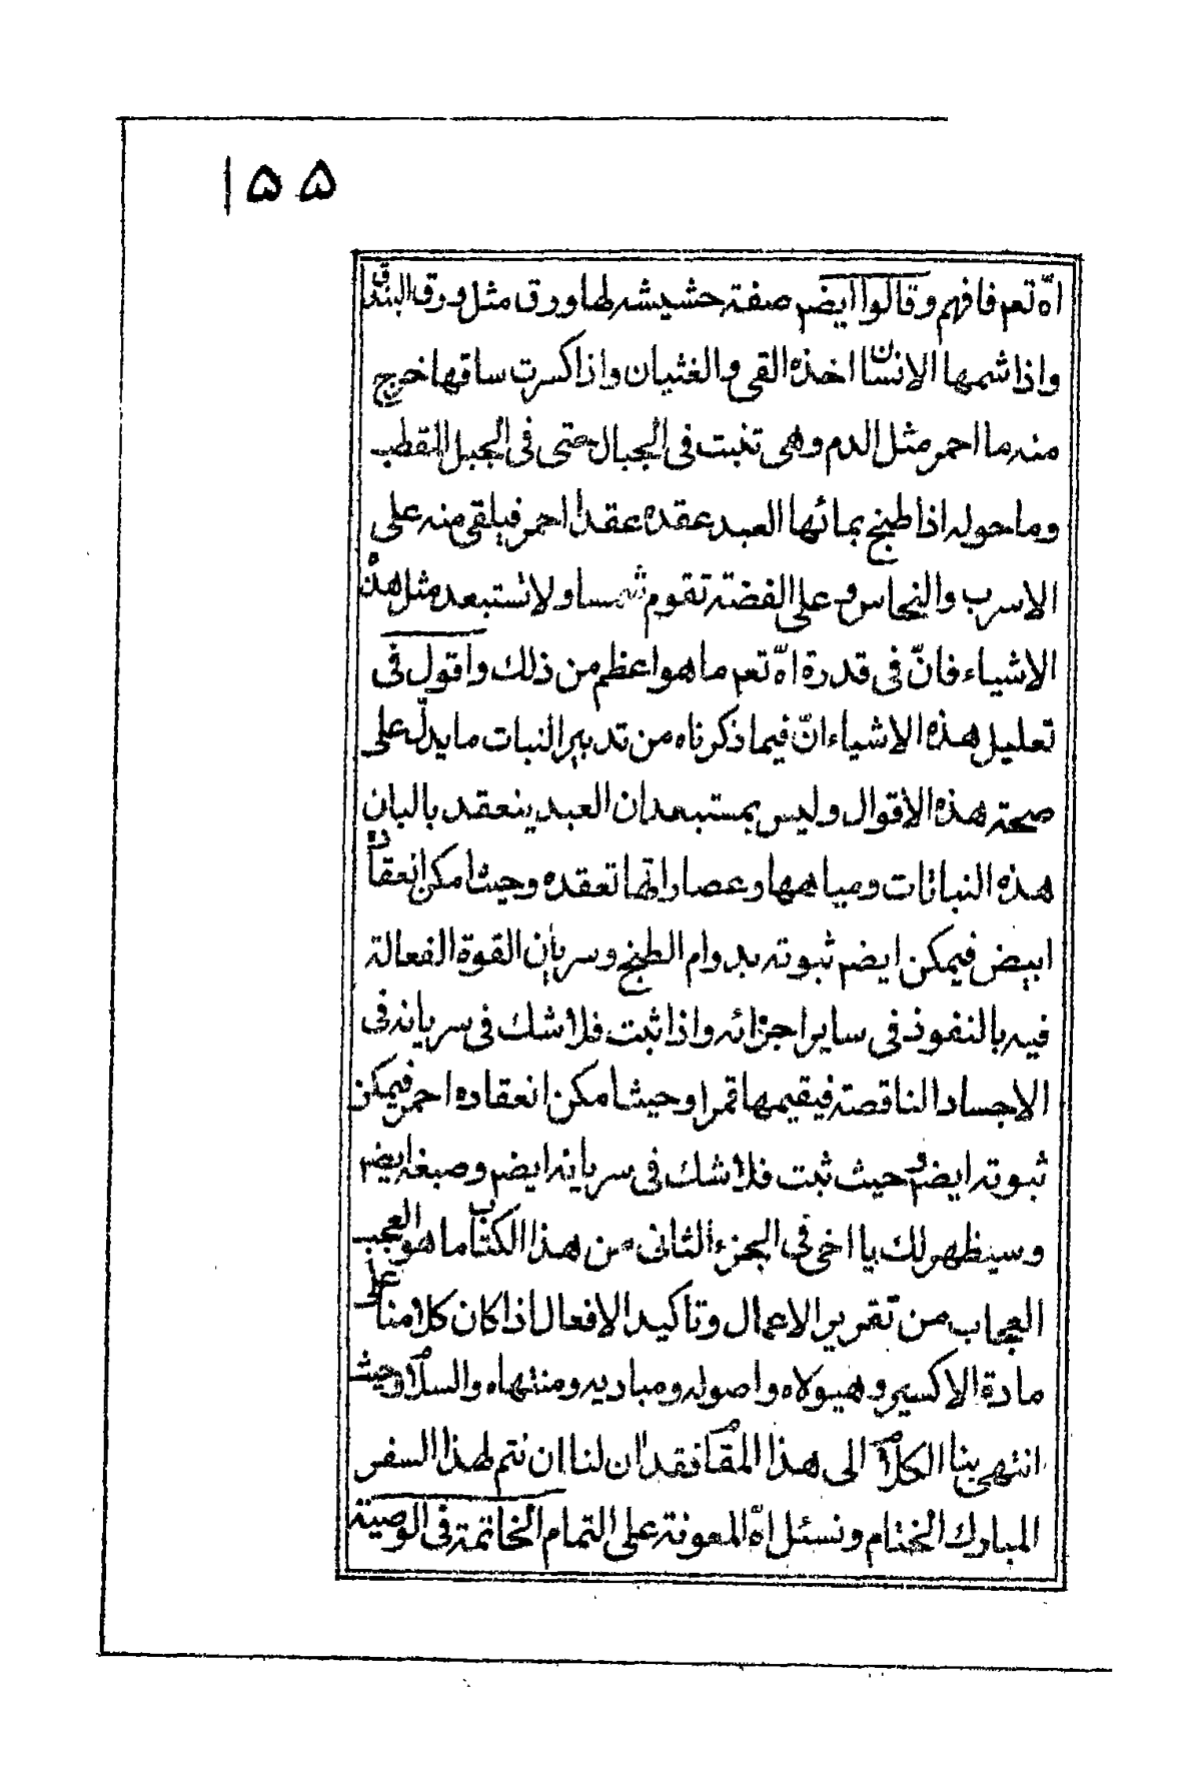 ۱۵۵
الله تعم فافهم وقالوا ايضم صفة حشيشه لها ورق مثل ورق البندق
واذا شمها الانسان اخذه القى والغثيان واذا كسرت ساقها خرج
منه ما احمر مثل الدم وهى تنبت فى الجبال حتى فى الجبل المقطب
وما حوله اذا طبخ بمائها العبد عقده عقدا احمر فيلقى منه على
الاسرب والنحاس و على الفضة تقوم شمسا ولا تستبعد مثل هذه
الاشياء فانّ فى قدرة الله تعم ما هو اعظم من ذلك واقول فى
تعليل هذه الاشياء انّ فيما ذكرناه من تدبير النبات ما يدلّ على
صحة هذه الاقوال وليس بمستبعد ان العبد ينعقد بالبان
هذه النباتات ومياهها وعصاراتها تعقده وحيث امكن انعقاده
ابيض فيمكن ايضم ثبوته بدوام الطبخ وسريان القوة الفعالة
فيه بالنفوذ فى ساير اجزائه واذا ثبت فلا شك فى سريانه فى
الاجساد الناقصة فيقيمها قمرا وحيث امكن انعقاده احمر فيمكن
ثبوته ايضم وحيث ثبت فلا شك فى سريانه ايضم وصبغه ايضم
وسيظهر لك يا اخى فى الجزء الثانى من هذا الكتاب ما هو العجب
العجاب من تقرير الاعمال وتاكيد الافعال اذا كان كلامنا على
مادة الاكسير وهيولاه واصوله ومباديه ومنتهاه والسلام وحيث
انتهى بنا الكلام الى هذا المقام فقد ان لنا ان نتم لهذا السفر
المبارك الختام ونسئل الله المعونة على التمام الخاتمة فى الوصية